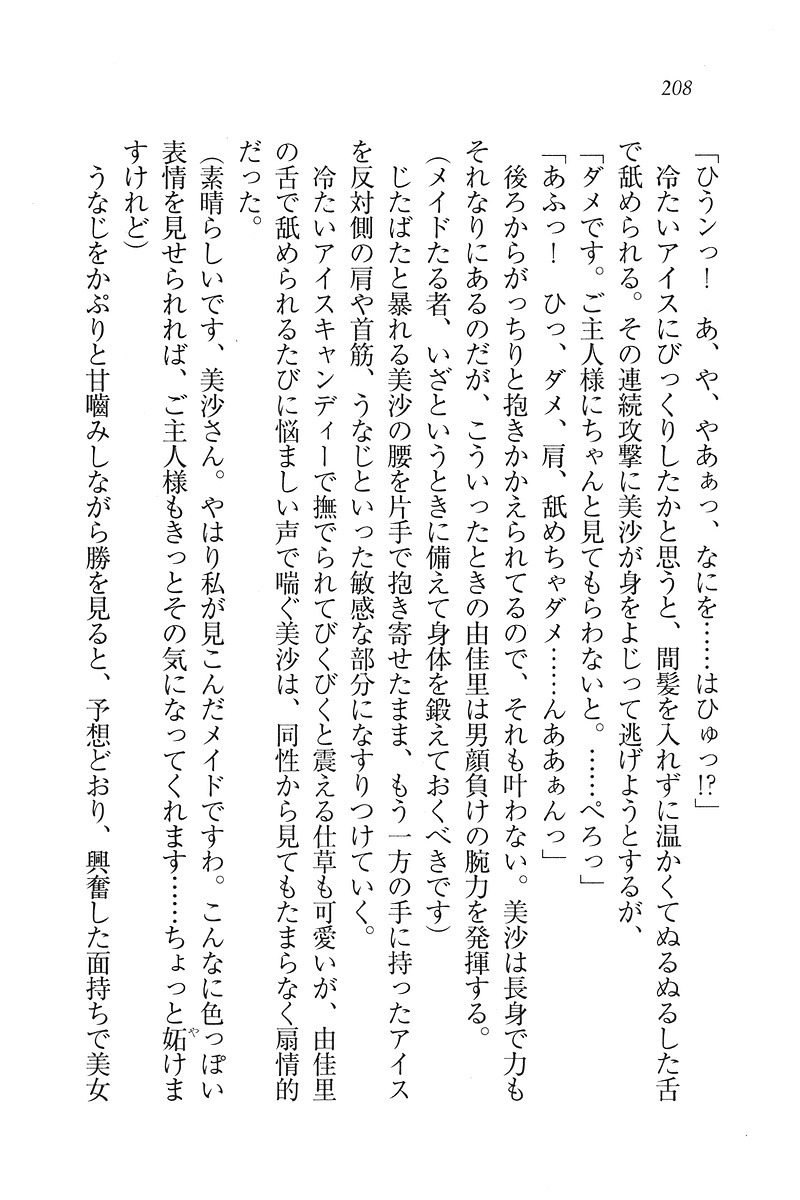 208
「ひうンっ！　あ、や、やあぁっ、なにを……はひゅっ!?」
　冷たいアイスにびっくりしたかと思うと、間髪を入れずに温かくてぬるぬるした舌
で舐められる。その連続攻撃に美沙が身をよじって逃げようとするが、
「ダメです。ご主人様にちゃんと見てもらわないと。……ぺろっ」
「あふっ！　ひっ、ダメ、肩、舐めちゃダメ……んああぁんっ」
　後ろからがっちりと抱きかかえられてるので、それも叶わない。美沙は長身で力も
それなりにあるのだが、こういったときの由佳里は男顔負けの腕力を発揮する。
（メイドたる者、いざというときに備えて身体を鍛えておくべきです）
　じたばたと暴れる美沙の腰を片手で抱き寄せたまま、もう一方の手に持ったアイス
を反対側の肩や首筋、うなじといった敏感な部分になすりつけていく。
　冷たいアイスキャンディーで撫でられてびくびくと震える仕草も可愛いが、由佳里
の舌で舐められるたびに悩ましい声で喘ぐ美沙は、同性から見てもたまらなく扇情的
だった。
（素晴らしいです、美沙さん。やはり私が見こんだメイドですわ。こんなに色っぽい
表情を見せられれば、ご主人様もきっとその気になってくれます……ちょっと妬けま
すけれど）
　うなじをかぷりと甘嚙みしながら勝を見ると、予想どおり、興奮した面持ちで美女